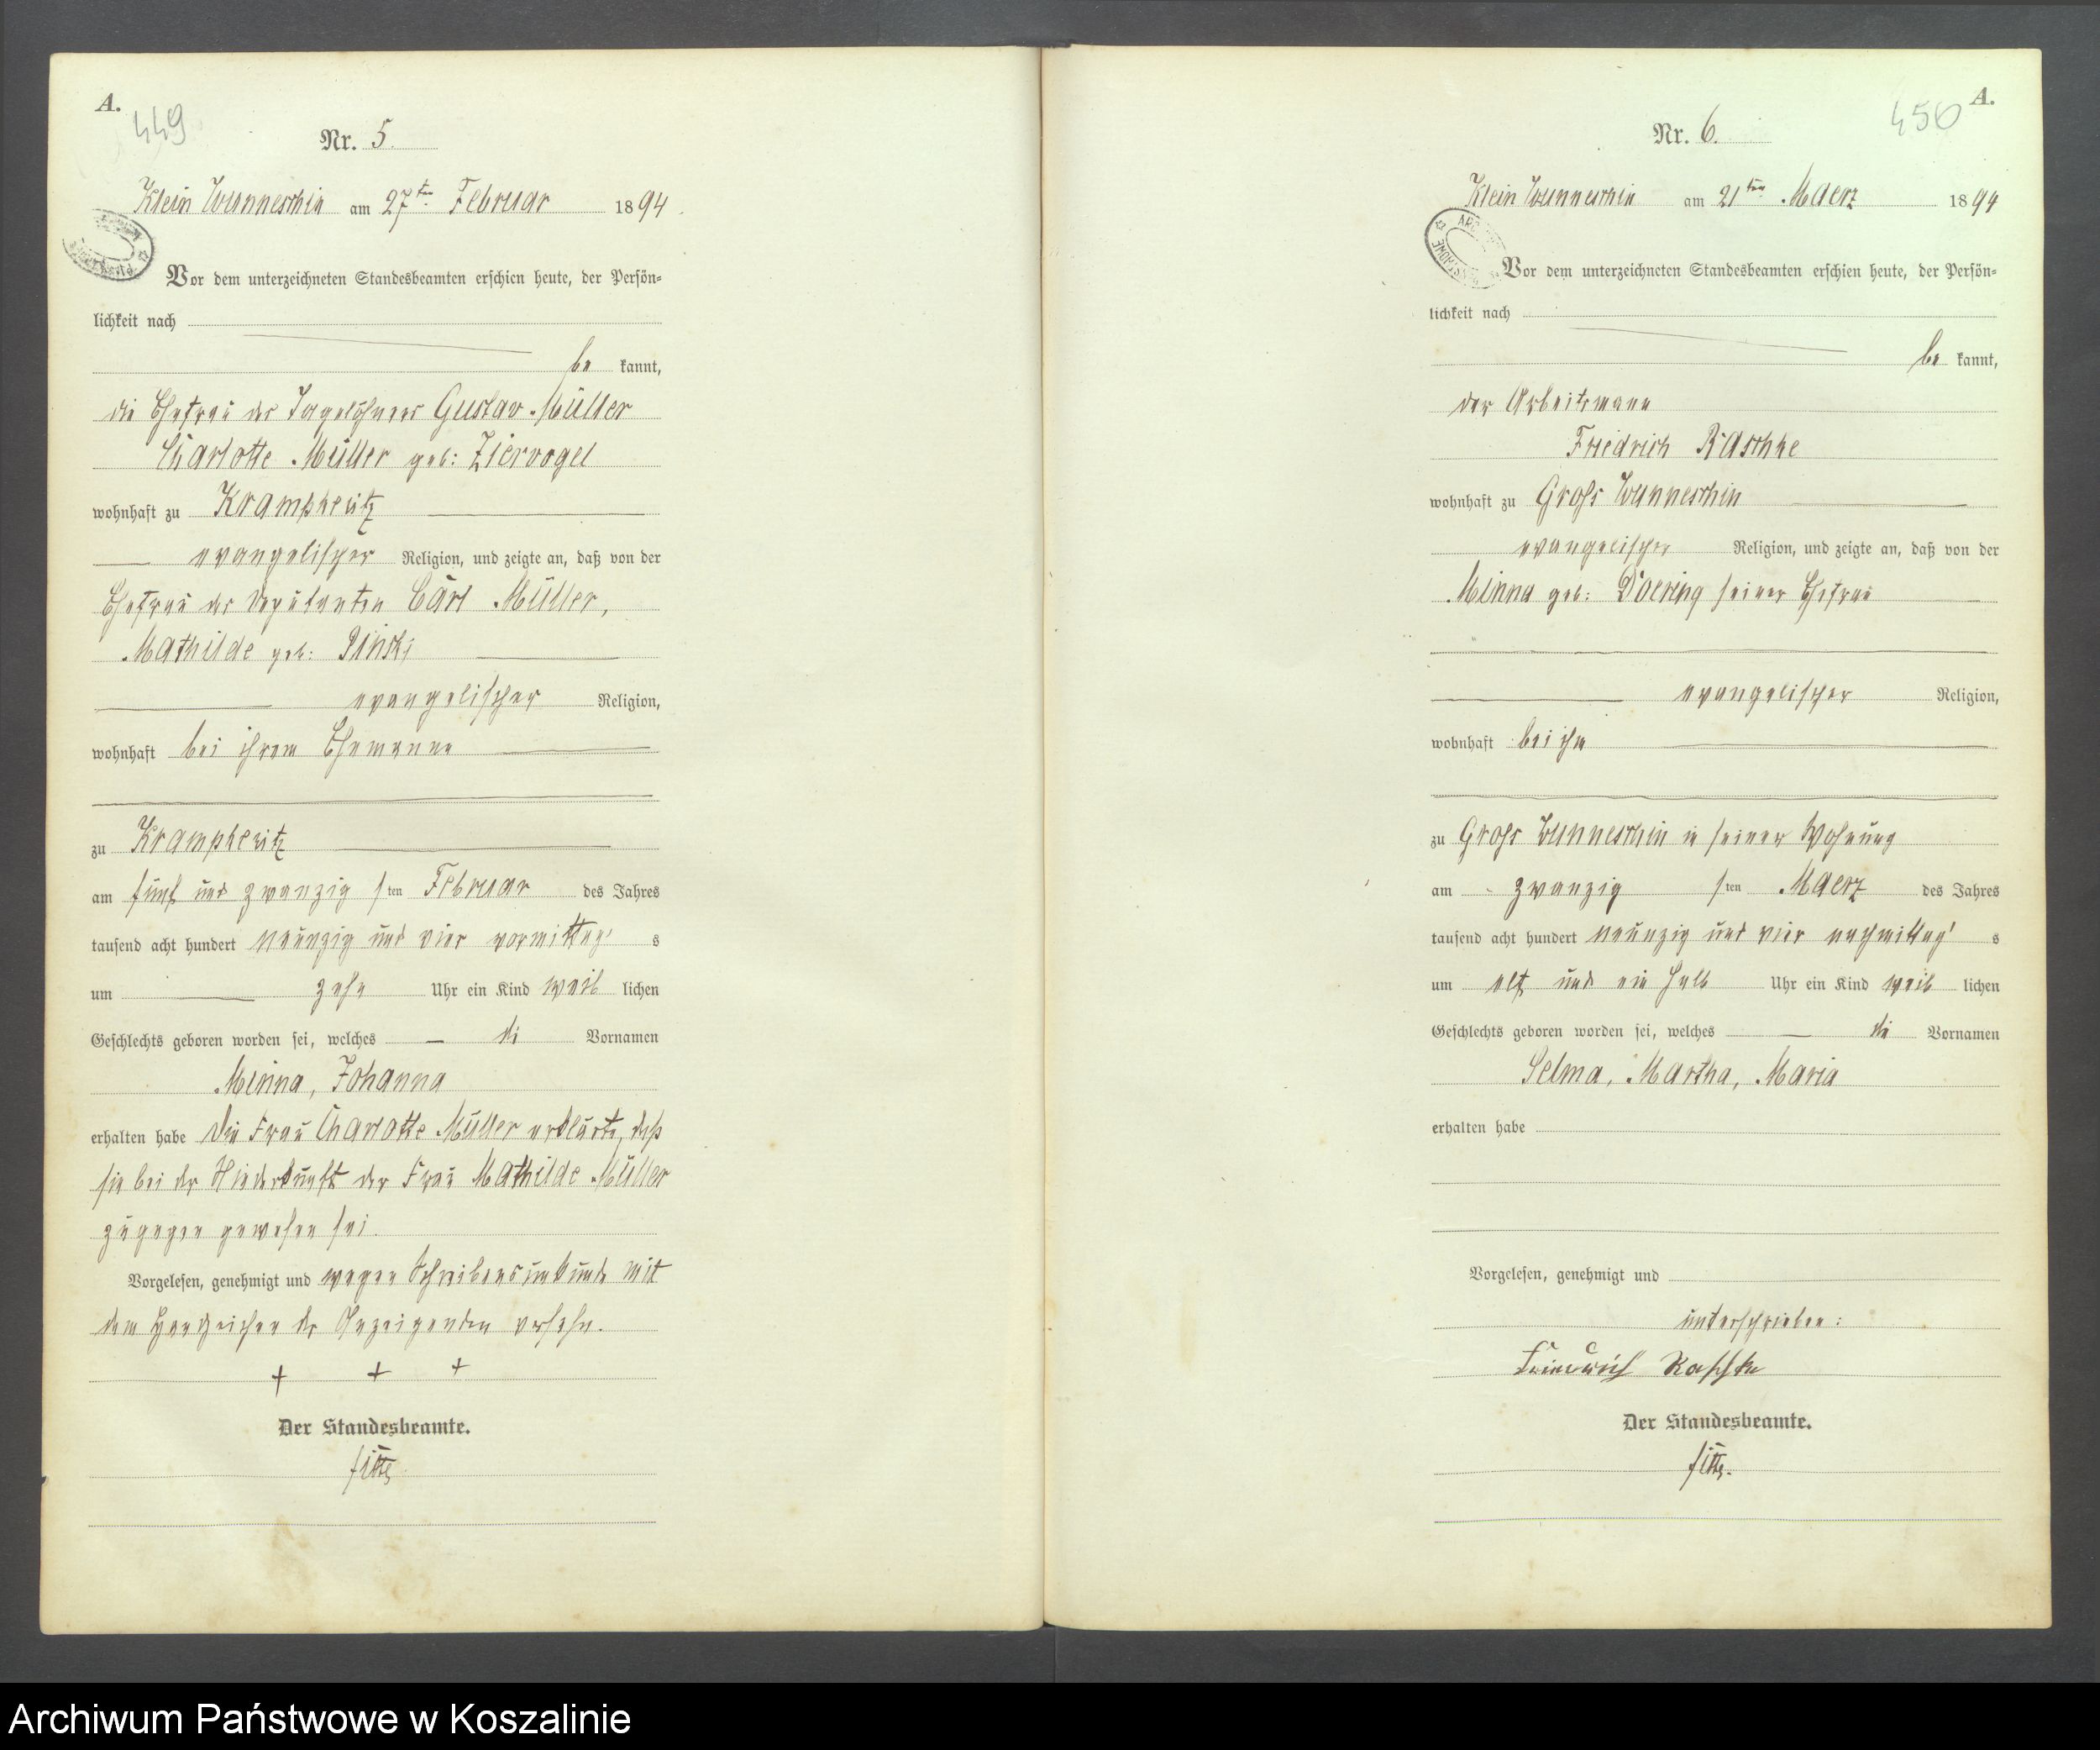 A.
449
Nr. 5.
Klein Wunneschin am 27ten Februar 1894.
Vor dem unterzeichneten Standesbeamten erschien heute, der Persön=
lichkeit nach
be kannt,
die Ehefrau des Tagelöhners Gustav Müller
Charlotte Müller geb: Ziervogel
wohnhaft zu Krampkewitz
evangelischer Religion, und zeigte an, daß von der
Ehefrau des Deputanten Carl Müller,
Mathilde geb:
evangelischer Religion,
wohnhaft bei ihrem Ehemanne
zu Krampkewitz
am fünf und zwanzig sten Februar des Jahres
tausend acht hundert neunzig und vier vormittags
um zehn Uhr ein Kind weiblichen
Geschlechts geboren worden sei, welches die Vornamen
Minna, Johanna
erhalten habe Die Frau Charlotte Müller erklärte, daß
sie bei der Niederkunft der Frau Mathilde Müller
zugegen gewesen sei.
Vorgelesen, genehmigt und wegen Schreibensunkunde mit
dem Handzeichen der Anzeigenden versehn.
+ + +
Der Standesbeamte.
A.
450
Nr. 6.
Klein Wunneschin am 21ten Maerz 1894
Vor dem unterzeichneten Standesbeamten erschien heute, der Persön=
lichkeit nach
be kannt,
der Arbeitsmann
Friedrich Raschke
wohnhaft zu Groß Wunneschin
evangelischer Religion, und zeigte an, daß von der
Minna geb: Doering seiner Ehefrau
evangelischer Religion,
wohnhaft bei ihm
zu Groß Wunneschin in seiner Wohnung
am zwanzig sten Maerz des Jahres
tausend acht hundert neunzig und vier nachmittags
um elf und ein halb Uhr ein Kind weiblichen
Geschlechts geboren worden sei, welches die Vornamen
Selma, Martha, Maria
erhalten habe
Vorgelesen, genehmigt und
unterschrieben:
Friedrich Raschke
Der Standesbeamte.
Archiwum Państwowe w Koszalinie